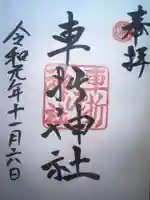 奉拝
車折神社
令和元年十一月六日